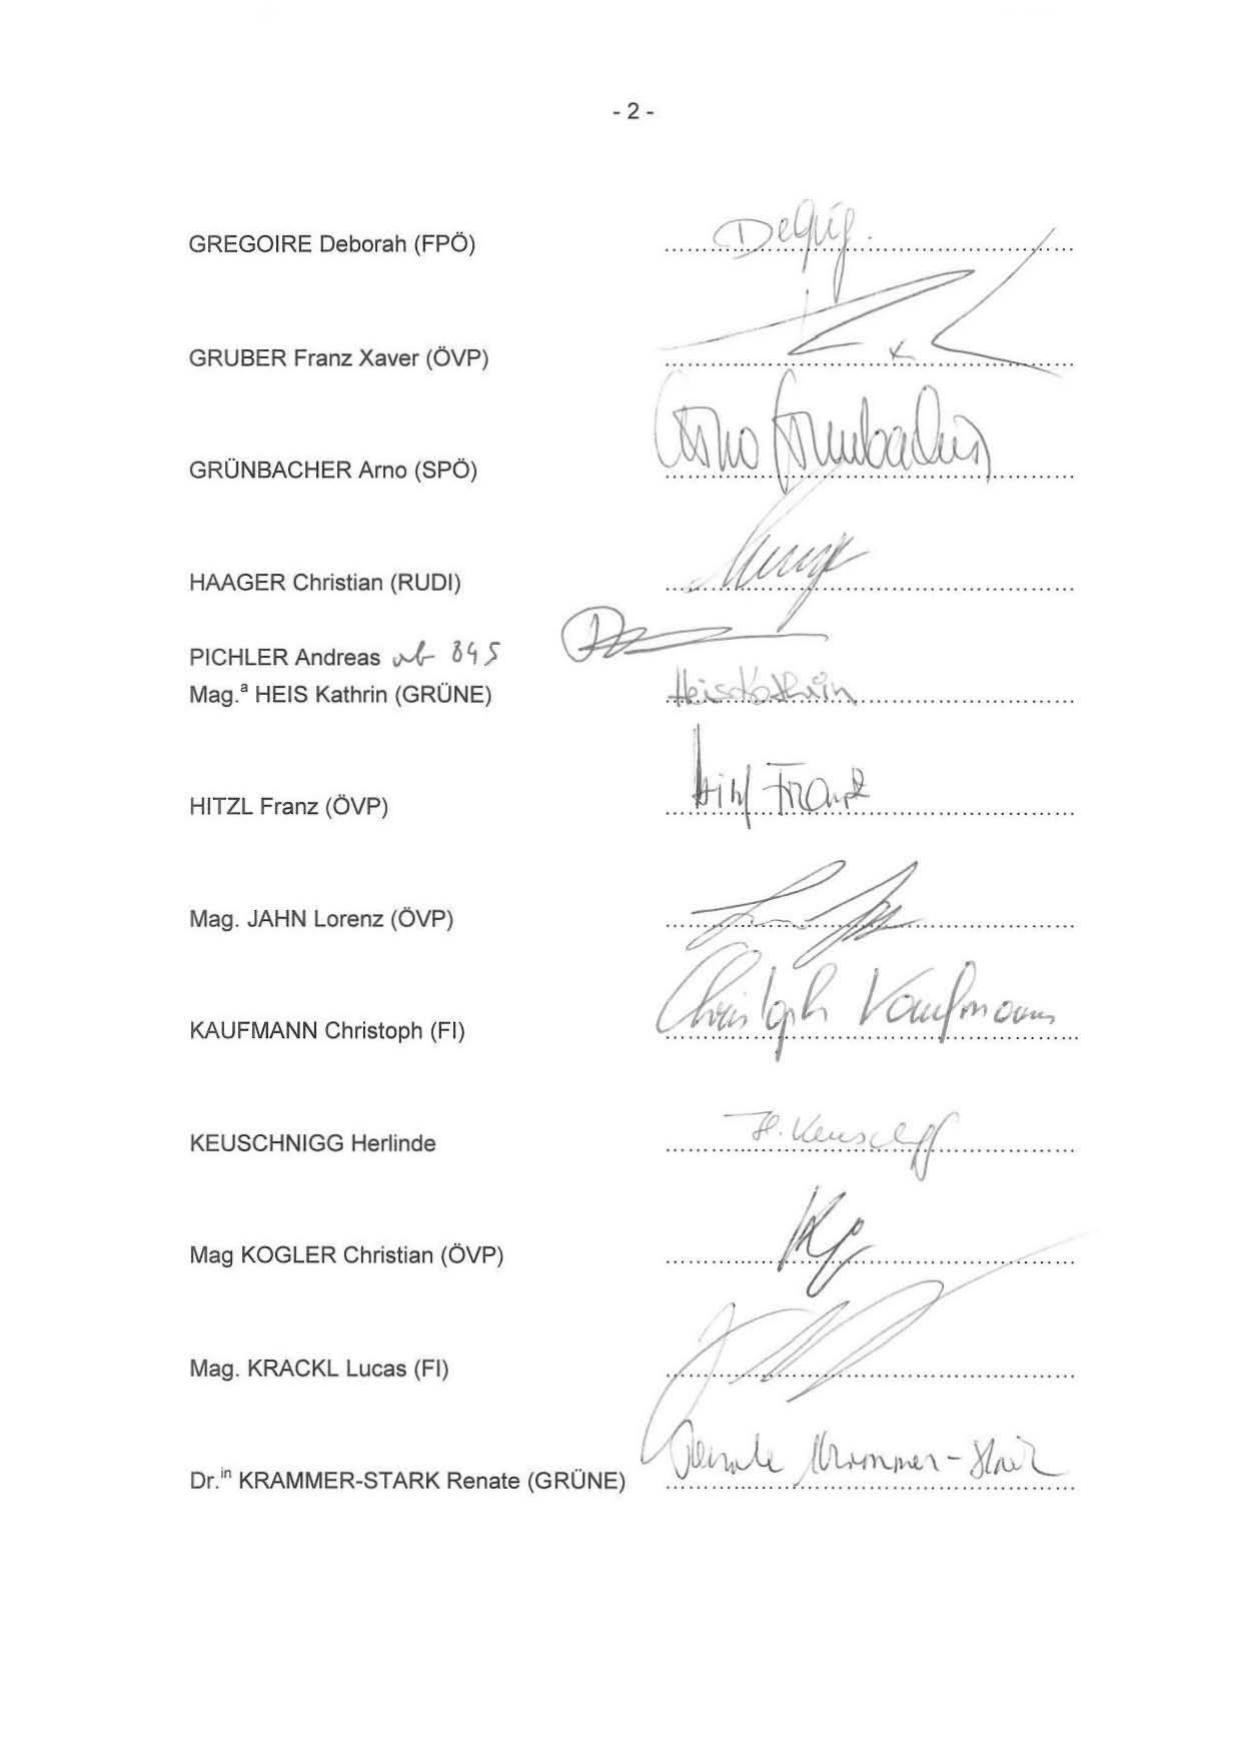 - 2 -
GREGOIRE Deborah (FPÖ)
GRUBER Franz Xaver (ÖVP)
GRÜNBACHER Arno (SPÖ) Arno Grünbacher
HAAGER Christian (RUDI)
PICHLER Andreas ab 845
Mag.ª HEIS Kathrin (GRÜNE) Heis Kathrin
HITZL Franz (ÖVP) Hitzl Franz
Mag. JAHN Lorenz (ÖVP)
KAUFMANN Christoph (FI) Christoph Kaufmann
KEUSCHNIGG Herlinde H. Keuschnigg
Mag KOGLER Christian (ÖVP)
Mag. KRACKL Lucas (FI)
Dr.ⁱⁿ KRAMMER-STARK Renate (GRÜNE) Renate Krammer-Stark